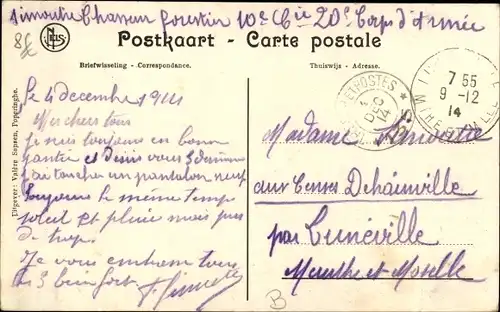 Simoutre Chasseur forestier 10e Cie 20e Corps d'Armée
Postkaart - Carte postale
Briefwisseling - Correspondance.
Thuiswijs - Adresse.
Le 4 décembre 1914
Mes chers tous
Je suis toujours en bonne
santé et depuis 3
j'ai touché un pantalon neuf
Toujours le même temps
soleil et pluie mais pas
de trop.
Je vous embrasse tous
les 3 bien fort
Uitgever: Valère Sapsen, Poperinghe.
7 55
9-12
14
DEC
14
Madame Simoutre
aux Censes Dehainville
par Lunéville
Meurthe et Moselle
B